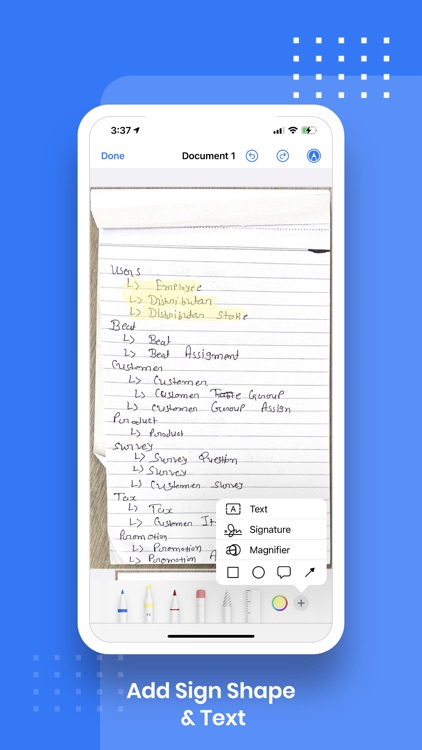 3:37
Done
Document 1
Users
↳ Employee
↳ Distributor
↳ Distributor Stoke
Beat
↳ Beat
↳ Beat Assignment
Customer
↳ Customer
↳ Customer Group
↳ Customer Group Assign
Product
↳ Product
Survey
↳ Survey Question
↳ Survey
↳ Customer Survey
Tax
↳ Tax
↳ Customer It
Promotion
↳ Promotion
↳ Promotion A
A Text
Signature
Magnifier
Add Sign Shape
& Text